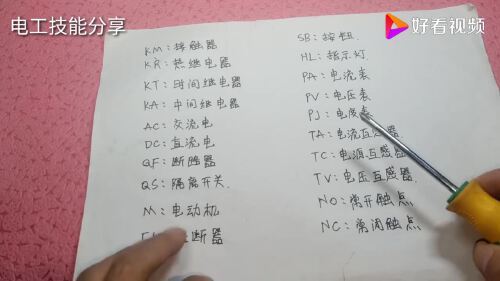 电工技能分享
好看视频
KM：接触器
KR：热继电器
KT：时间继电器
KA：中间继电器
AC：交流电
DC：直流电
QF：断路器
QS：隔离开关
M：电动机
断器
SB：按钮
HL：指示灯
PA：电流表
PV：电压表
PJ：电度表
TA：电流互感器
TC：电源互感器
TV：电压互感器
NO：离开触点
NC：离闭触点